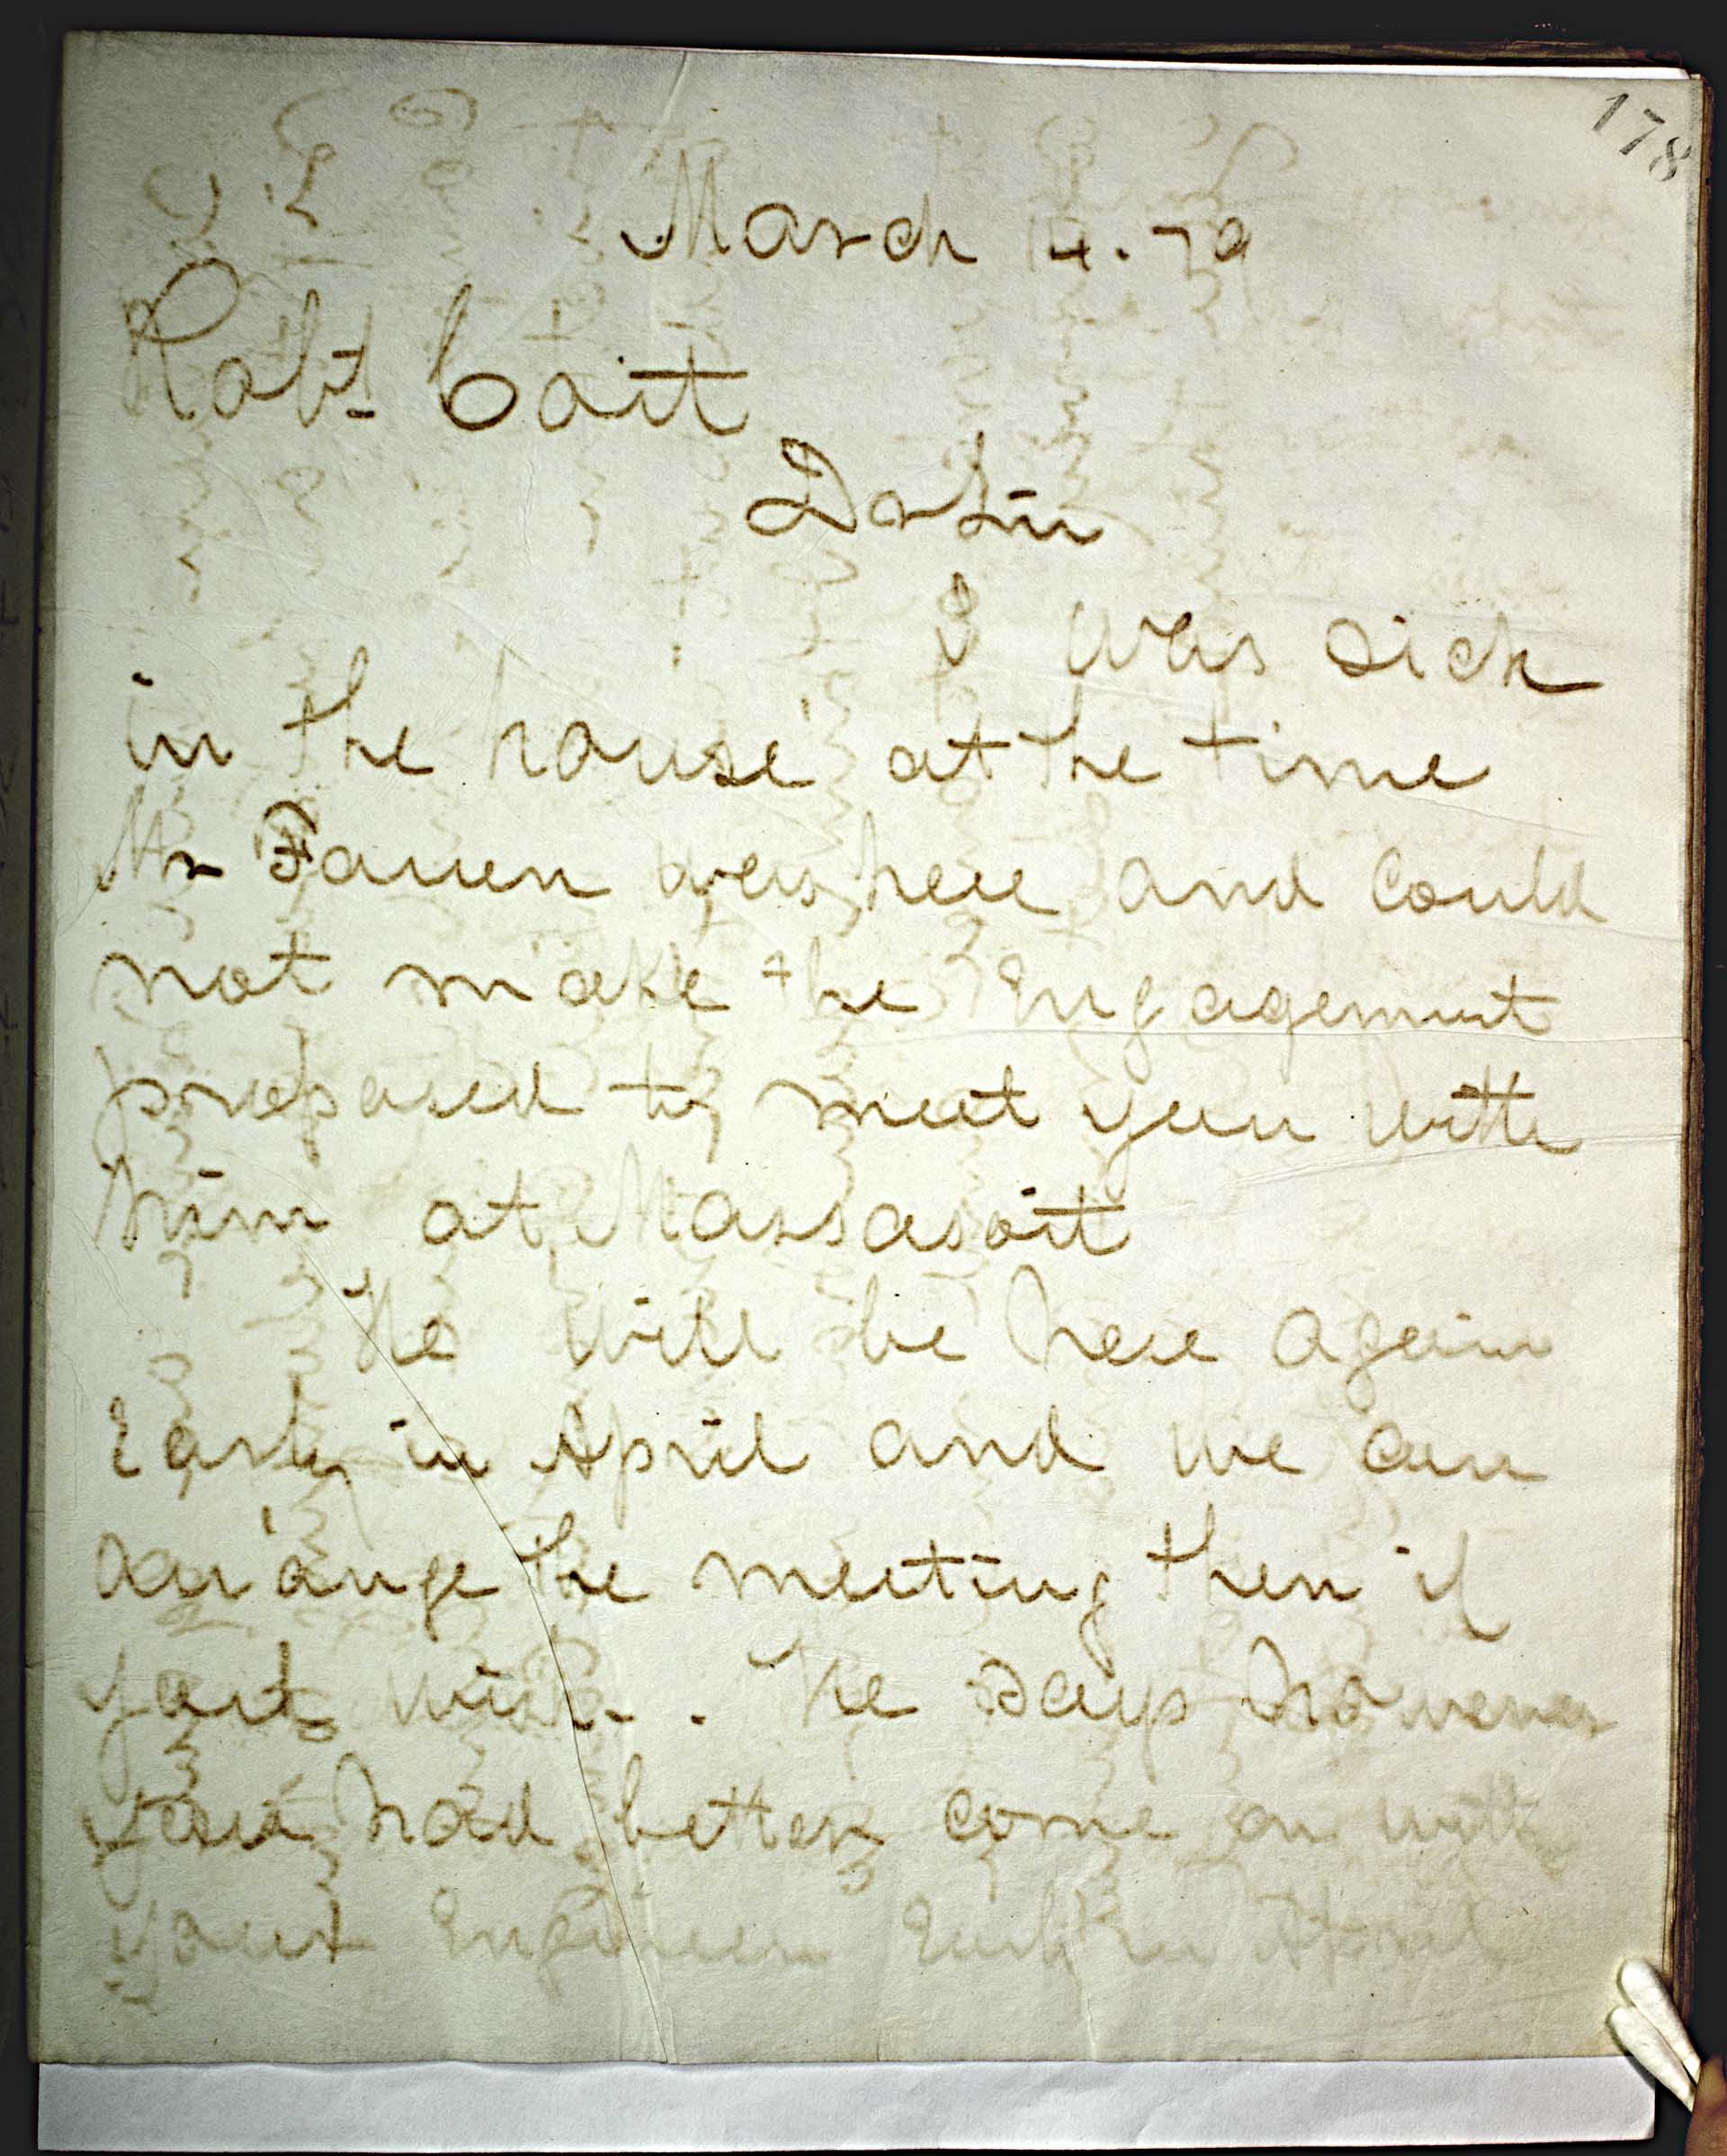 178
March 4. 79
Robt Coit
Dr Sir
I was sick
in the house at the time
Mr Farren was here and could
not make the Engagement
proposed to meet you with
him at Massasoit
He will be here again
Early in April and we can
arrange the meeting then if
you wish. He says however
you had better come on with
your Engineer Early in April